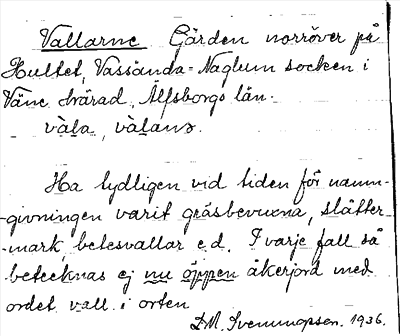 Vallarne Gärden norröver på
Hultet, Vassända-Naglum socken i
Väne härad, Älfsborgs län.
vàla, vàlanɔ.
Ha tydligen vid tiden för namn-
-givningen varit gräsbevuxna, slåtter-
-mark, betesvallar e.d. I varje fall så
betecknas ej nu öppen åkerjord med
ordet vall i orten.
D.M. 1936.